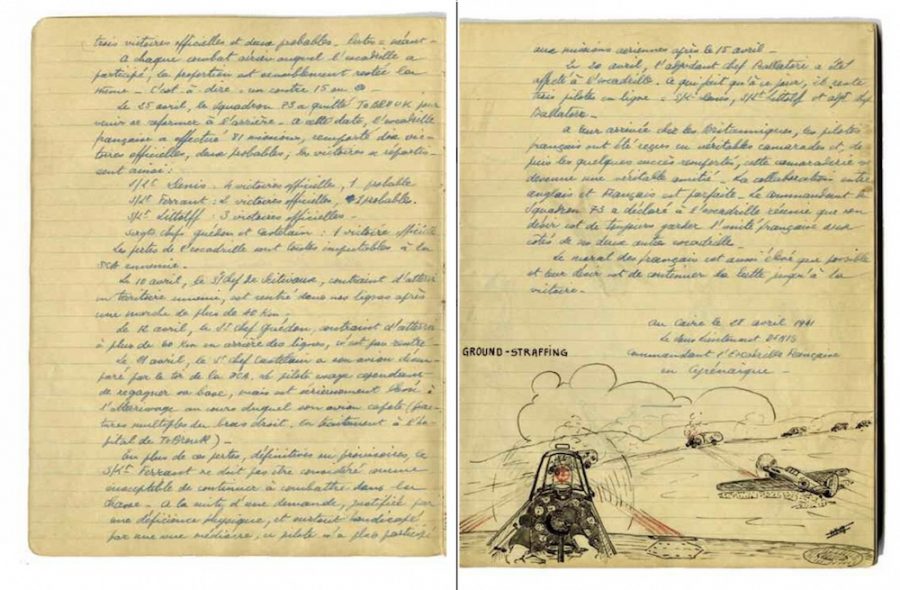 trois victoires officielles et deux probables. Pertes = néant.
A chaque combat aérien auquel l'escadrille a
participé, la proportion est sensiblement restée la
même. C'est à dire : un contre 15 ou
Le 25 avril, le Squadron 73 a quitté TOBROUK pour
venir se reformer à l'arrière. A cette date, l'escadrille
française a effectué 81 missions, remporté dix vic-
toires officielles, deux probables, les victoires se répartis-
sent ainsi :
S/Lt Denis : 4 victoires officielles, 1 probable
S/Lt Ferrant : 2 victoires officielles, 1 probable.
S/Lt Littolff : 3 victoires officielles -
Sergts Chefs Guédon et Castelain : 1 victoire officielle
Les pertes de l'escadrille sont toutes imputables à la
DCA ennemie.
Le 10 avril, le S/Chef de Scitivaux, contraint d'atterrir
en territoire ennemi, est rentré dans nos lignes après
une marche de plus de 40 Km.
Le 12 avril, le St Chef Guédon, contraint d'atterrir
à plus de 60 Km en arrière des lignes, n'est pas rentré.
Le avril, le St Chef Castelain a son avion désem-
paré par le tir de la DCA. Le pilote essaye cependant
de regagner sa base, mais est sérieusement blessé à
l'atterrissage au cours duquel son avion capote (frac-
tures multiples du bras droit. En traitement à l'hô-
pital de TOBROUK) -
En plus de ces pertes, définitives ou provisoires, le
S/Lt Ferrant ne doit pas être considéré comme
susceptible de continuer à combattre dans la
Chasse. A la suite d'une demande, justifiée par
une déficience physique, et surtout handicapé
par une vue médiocre, ce pilote n'a plus participé
aux missions aériennes après le 15 avril -
Le 20 avril, l'adjudant Chef Ballatore a été
affecté à l'escadrille. Ce qui fait qu'à ce jour, il reste
trois pilotes en ligne : S/Lt Denis, S/Lt Littolff et adjt Chef
Ballatore.
A leur arrivée chez les Britanniques, les pilotes
français ont été reçus en véritables camarades et, de-
puis les quelques succès remportés, cette camaraderie est
devenue une véritable amitié. La collaboration entre
anglais et Français est parfaite. Le commandant du
Squadron 73 a déclaré à l'escadrille réunie que son
désir est de toujours garder l'unité française aux
côtés de ses deux autres escadrilles.
Le moral des français est aussi élevé que possible
et leur désir est de continuer la lutte jusqu'à la
victoire -
Au Caire le 28 avril 1941
Le Sous Lieutenant DENIS
Commandant l'Escadrille Française
en Cyrénaïque -
GROUND-STRAFFING